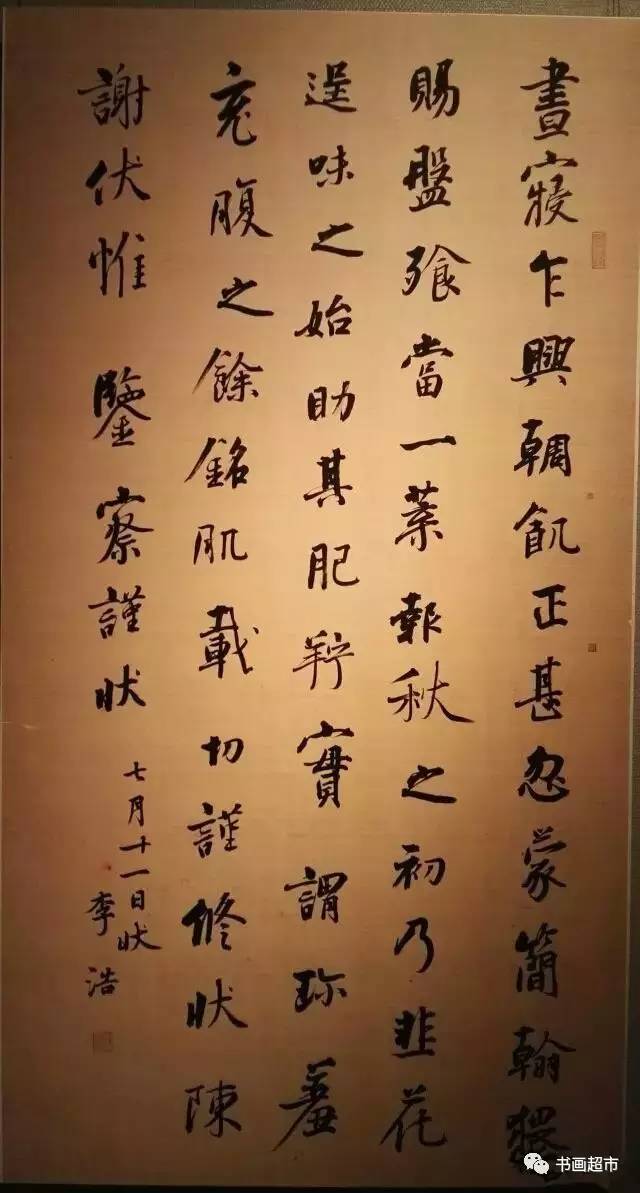 晝寢乍興輖飢正甚忽蒙簡翰猥
賜盤飧當一葉報秋之初乃韭花
逞味之始助其肥羜實謂珍羞
充腹之餘銘肌載切謹修狀陳
謝伏惟 鑒察謹狀
七月十一日狀
李浩
书画超市